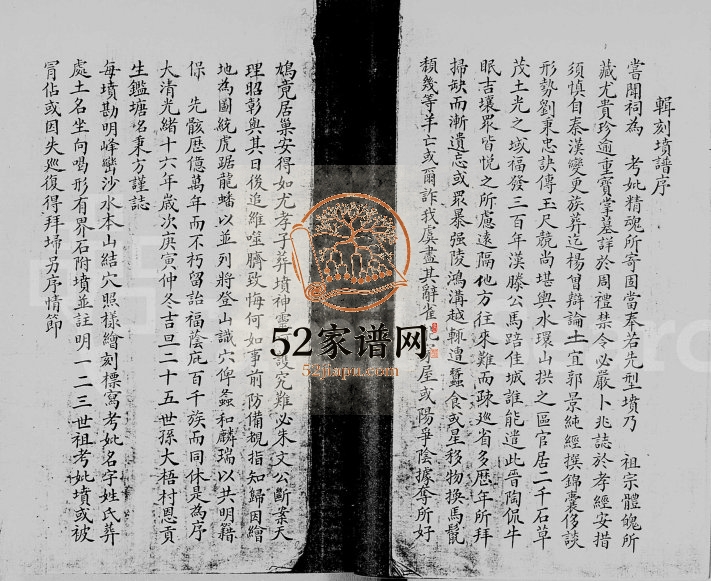 輯刻墳譜序
嘗聞祠為　考妣精魂所寄固當奉若先型墳乃　祖宗體魄所
藏尤貴珍逾重寶掌墓詳於周禮禁令必嚴卜兆誌於孝經安措
須慎自秦漢變更族葬迄楊曾辯論土宜郭景純經撰錦囊侈談
形勢劉秉忠訣傳玉尺競尚堪輿水環山拱之區官居二千石草
茂土光之域福發三百年漢滕公馬踣佳城誰能遣此晉陶侃牛
眠吉壤眾皆悅之所慮遠隔他方往來難而疎巡省多歷年所拜
掃缺而漸遺忘或眾暴强陵鴻溝越輒遭蠶食或星移物換馬鬣
頹幾等羊亡或爾詐我虞盡其辭雀屋或陽爭陰據奪所好
鳩竟居巢安得如尤孝子葬墳神設究難必朱文公斷案天
理昭彰與其日後追維噬臍致悔何如事前防備覩指知歸因繪
地為圖統虎踞龍蟠以並列將登山識穴俾螽和麟瑞以共明籍
保　先骸歷億萬年而不朽留詒福蔭庇百千族而同休是為序
大清光緒十六年歲次庚寅仲冬吉旦二十五世孫大梧村恩貢
生鑑塘名秉方謹誌
每墳勘明峰巒沙水本山結穴照樣繪刻標寫考妣名字姓氏葬
處土名坐向喝形有界石附墳並註明一二三世祖考妣墳或被
冐佔或因失巡復得拜埽另序情節
52家谱网
52jiapu.com